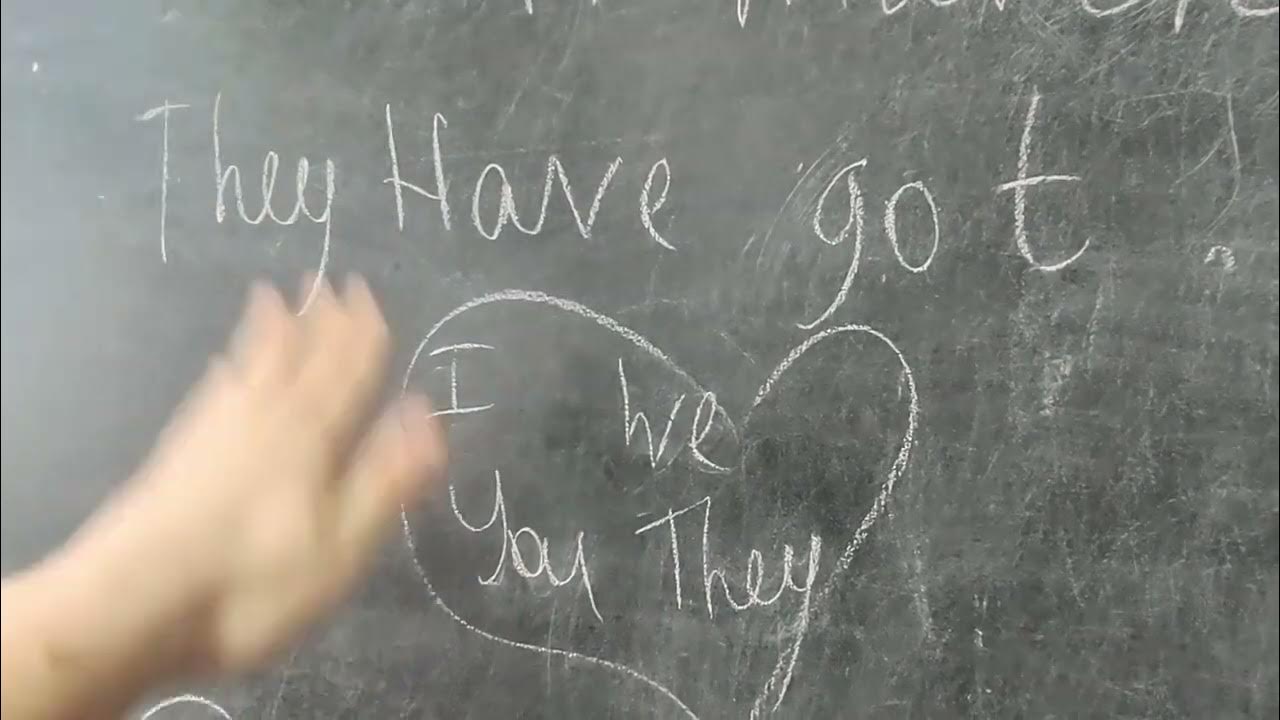 They Have got .
I we
You They